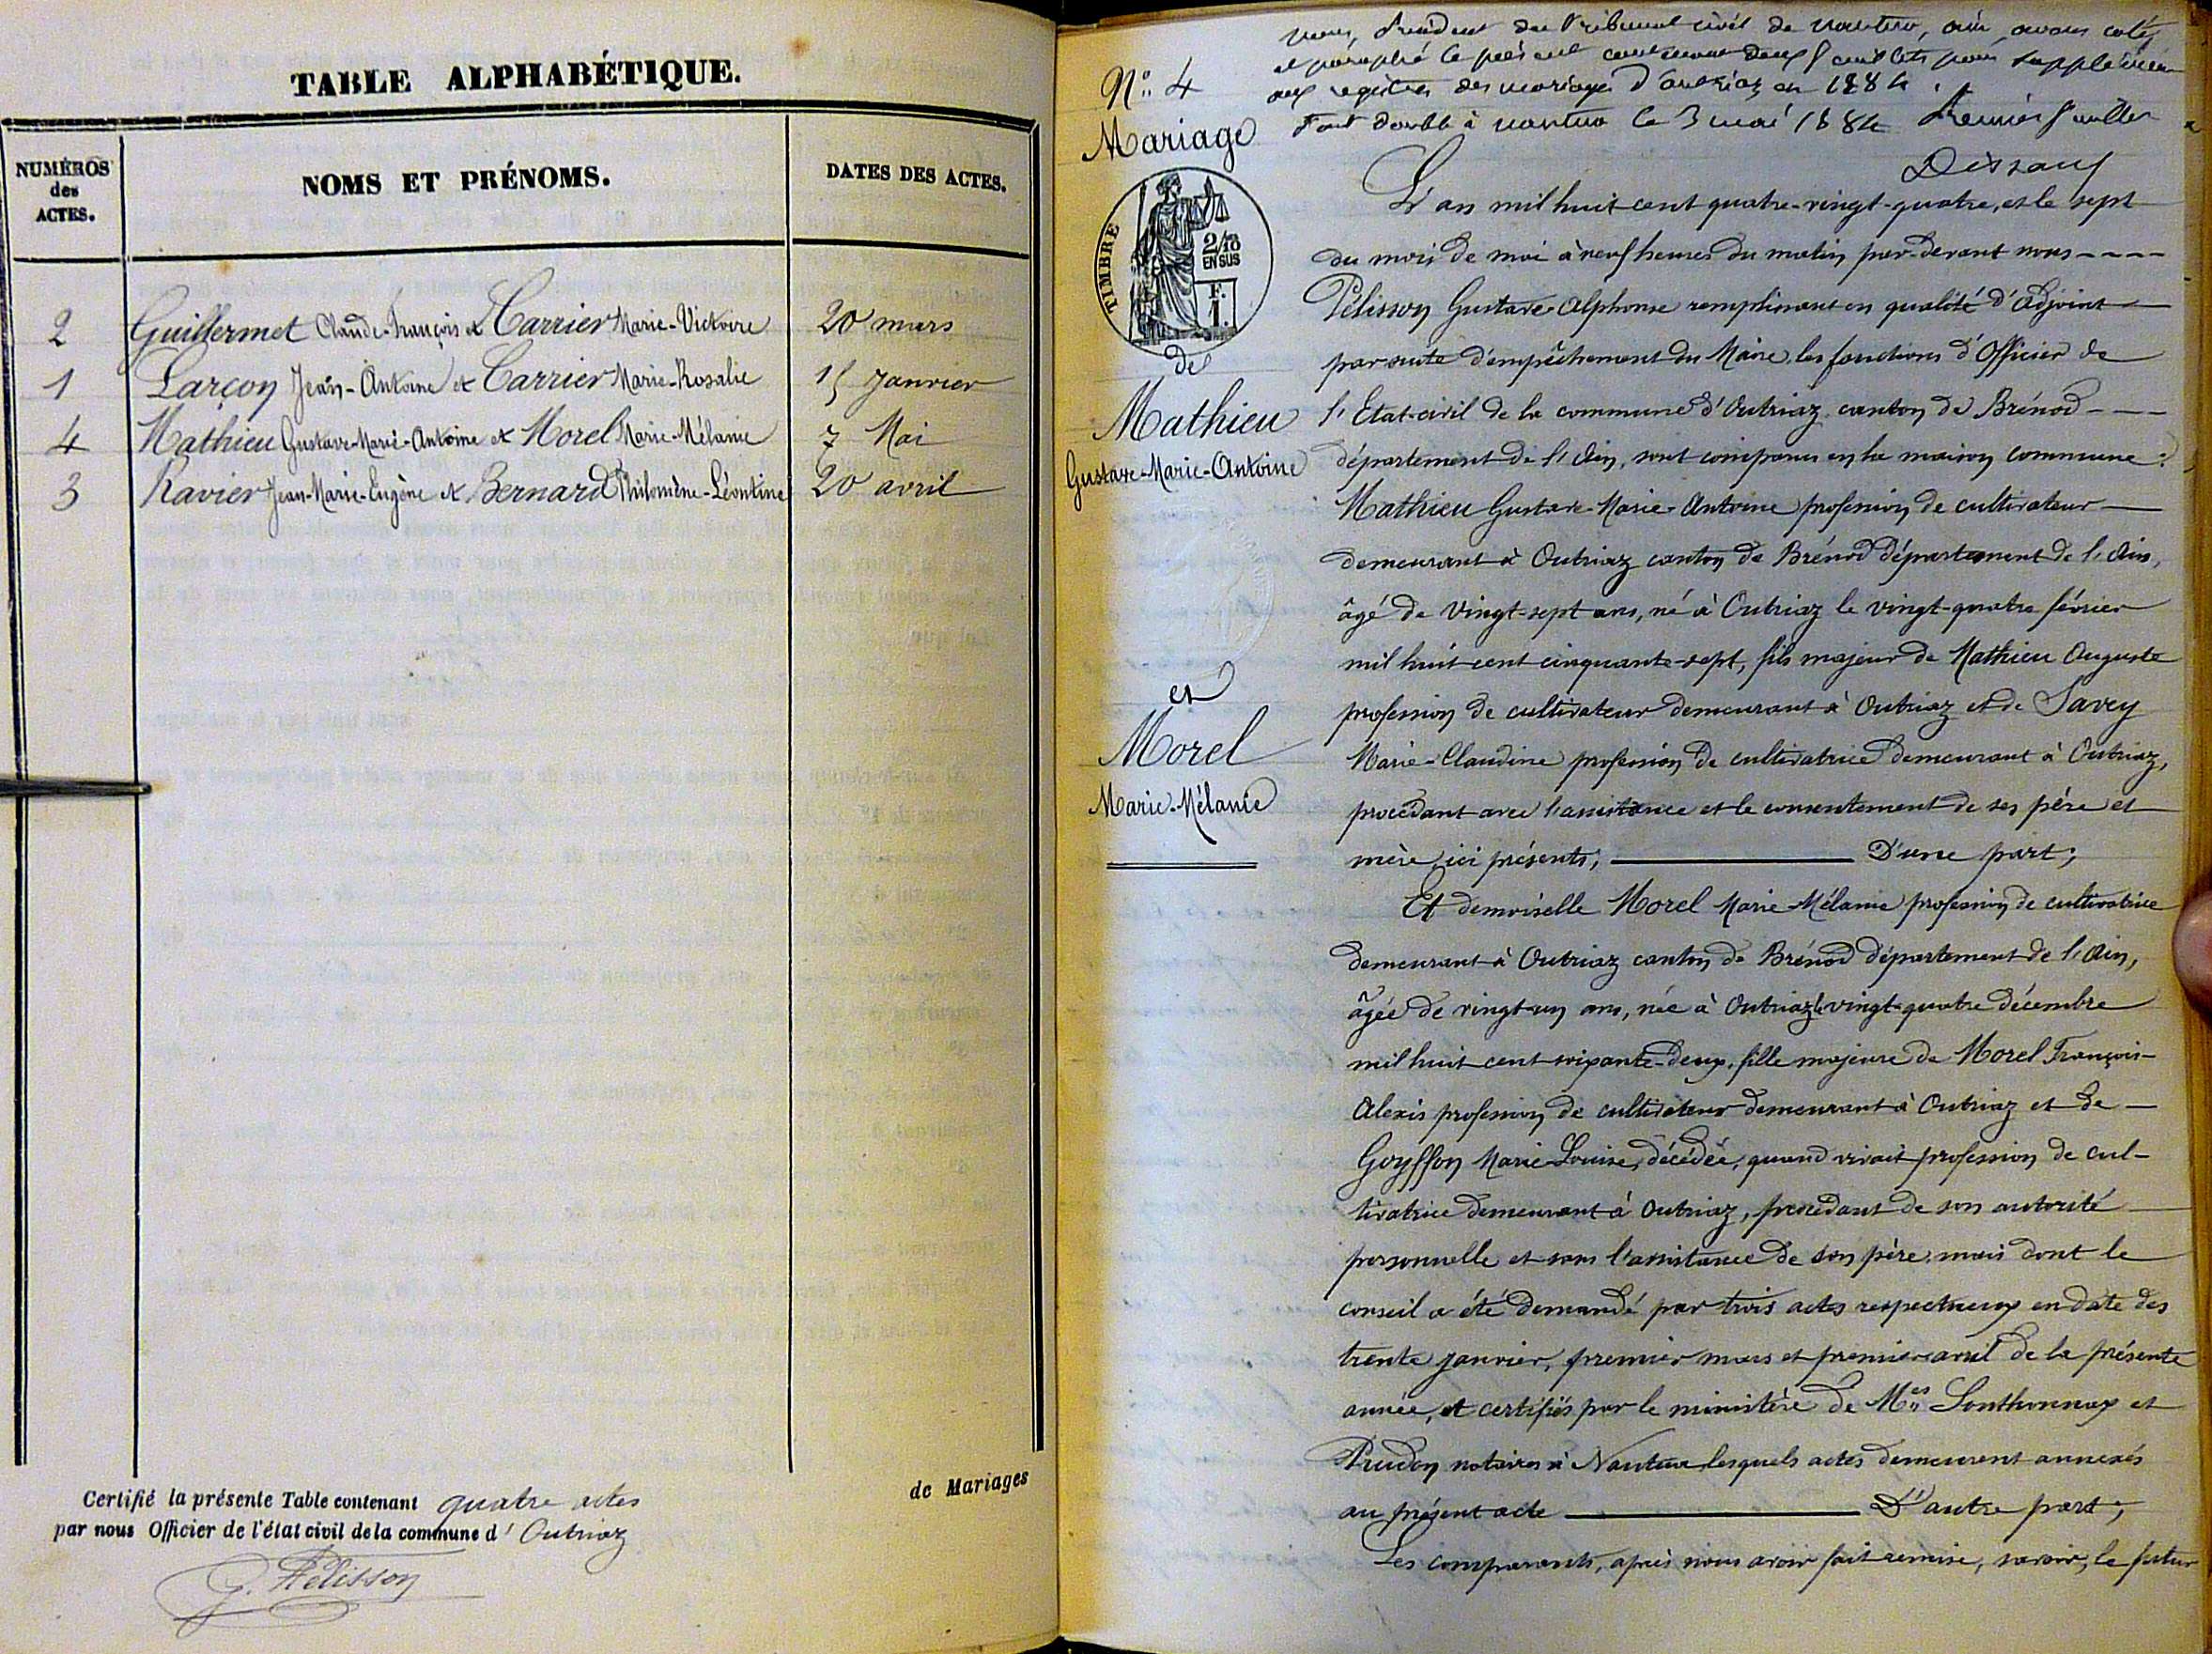 TABLE ALPHABÉTIQUE.
NUMÉROS des ACTES.
NOMS ET PRÉNOMS.
DATES DES ACTES.
2 Guillermet Claude-François et Carrier Marie-Victoire 20 mars
1 Larçon Jean-Antoine et Carrier Marie-Rosalie 15 Janvier
4 Mathieu Gustave-Marie-Antoine et Morel Marie-Mélanie 7 Mai
3 Ravier Jean-Marie-Eugène et Bernard Philomène-Léontine 20 avril
Certifié la présente Table contenant quatre actes de Mariages
par nous Officier de l'état civil de la commune d' Outriaz
G. Pélisson
Nous, Président du Tribunal civil de Nantua, Ain, avons coté
et paraphé le présent contenant deux feuillets pour supplément
aux registres des mariages d'Outriaz en 1884.
Fait double à Nantua le 3 mai 1884 Premier feuillet
N° 4
Mariage
TIMBRE
2/10
EN SUS
F.
1.
de
Mathieu
Gustave-Marie-Antoine
et
Morel
Marie-Mélanie
L'an mil huit cent quatre-vingt-quatre, et le sept
du mois de mai à neuf heures du matin par-devant nous ----
Pélisson Gustave Alphonse remplissant en qualité d'Adjoint
par suite d'empêchement du Maire, les fonctions d'Officier de
l'Etat-civil de la commune d'Outriaz, canton de Brénod ---
département de l'Ain, sont comparus en la maison commune:
Mathieu Gustave-Marie-Antoine profession de cultivateur
demeurant à Outriaz canton de Brénod département de l'Ain,
âgé de vingt-sept ans, né à Outriaz le vingt-quatre février
mil huit cent cinquante-sept, fils majeur de Mathieu Auguste
profession de cultivateur demeurant à Outriaz et de Savey
Marie-Claudine profession de cultivatrice demeurant à Outriaz,
procédant avec l'assistance et le consentement de ses père et
mère ici présents; D'une part;
Et demoiselle Morel Marie Mélanie profession de cultivatrice
demeurant à Outriaz canton de Brénod département de l'Ain,
âgée de vingt-un ans, née à Outriaz le vingt-quatre décembre
mil huit cent soixante-deux, fille majeure de Morel François-
Alexis profession de cultivateur demeurant à Outriaz et de -
Goyffon Marie-Louise, décédée, quand vivait profession de cul-
tivatrice demeurant à Outriaz, procédant de son autorité
personnelle et sans l'assistance de son père, mais dont le
conseil a été demandé par trois actes respectueux en date des
trente janvier, premier mars et premier avril de la présente
année, et certifiés par le ministère de Mes Sonthonnax et
Prudon notaires à Nantua, lesquels actes demeurent annexés
au présent acte D'autre part;
Les comparants, après nous avoir fait remise, savoir, le futur